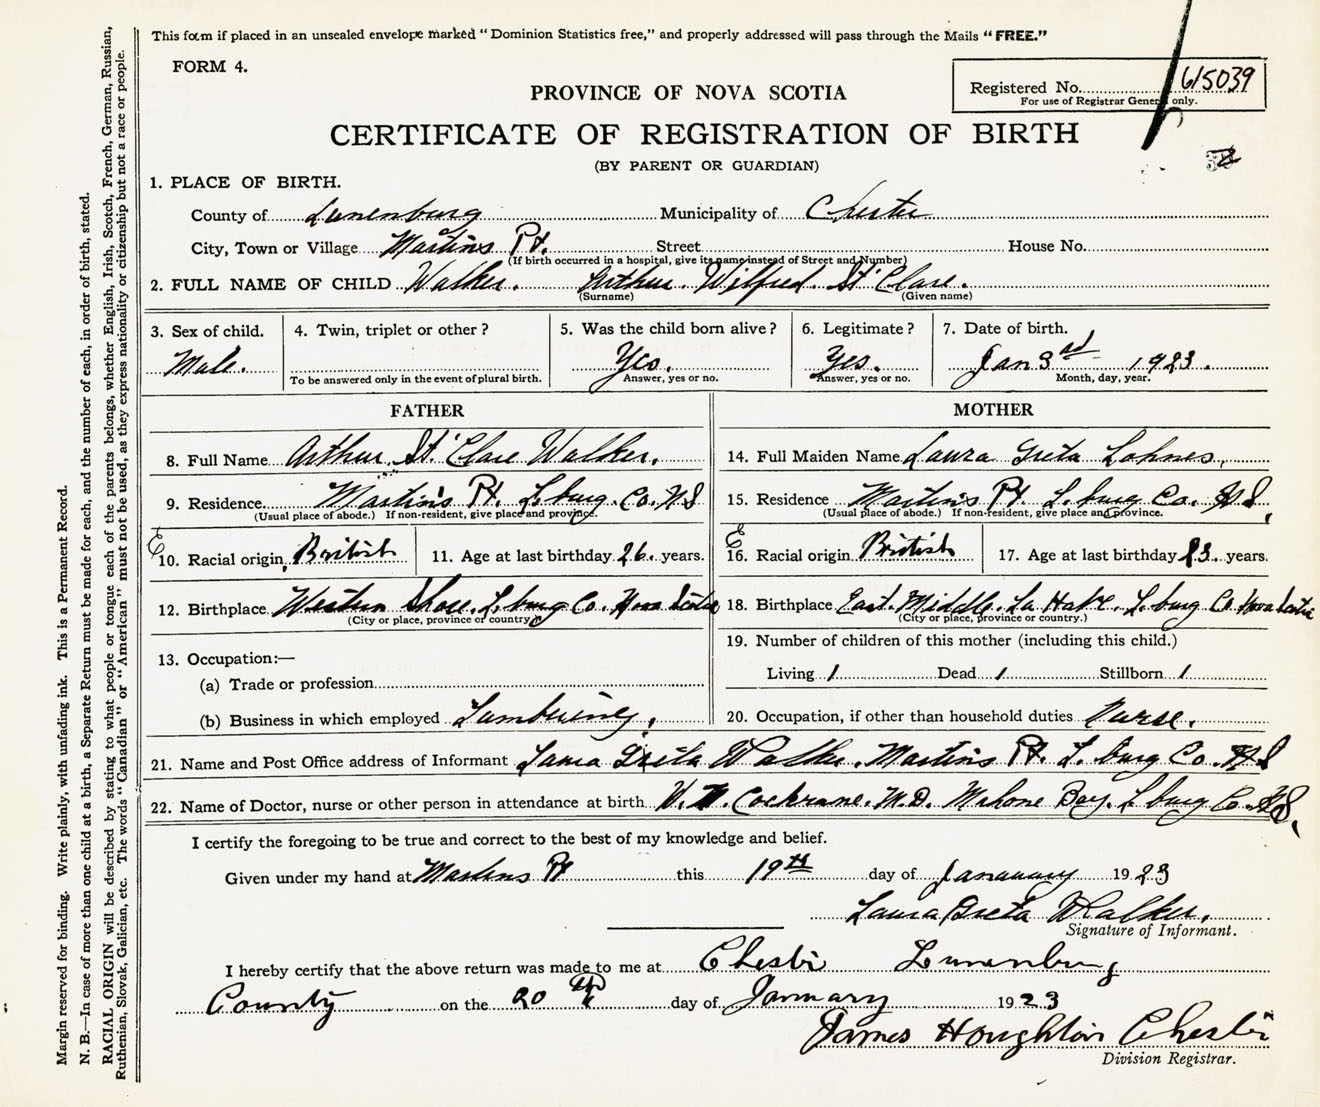 This form if placed in an unsealed envelope marked "Dominion Statistics free," and properly addressed will pass through the Mails "FREE."
FORM 4.
Registered No. 615039
For use of Registrar General only.
PROVINCE OF NOVA SCOTIA
CERTIFICATE OF REGISTRATION OF BIRTH
(BY PARENT OR GUARDIAN)
1. PLACE OF BIRTH.
County of Lunenburg Municipality of Chester
City, Town or Village Martins Pt. Street House No.
(If birth occurred in a hospital, give its name instead of Street and Number)
2. FULL NAME OF CHILD Walker. Arthur Wilfred St Clare.
(Surname) (Given name)
3. Sex of child. 4. Twin, triplet or other? 5. Was the child born alive? 6. Legitimate? 7. Date of birth.
Male. Yes. Yes. Jan 3rd 1923.
To be answered only in the event of plural birth. Answer, yes or no. Answer, yes or no. Month, day, year.
FATHER MOTHER
8. Full Name Arthur St Clare Walker. 14. Full Maiden Name Laura Greta Lohnes,
9. Residence Martin's Pt. L.burg. Co. N S 15. Residence Martin's Pt. L.burg Co. N S,
(Usual place of abode.) If non-resident, give place and province. (Usual place of abode.) If non-resident, give place and province.
E E
10. Racial origin British 11. Age at last birthday 26. years. 16. Racial origin British 17. Age at last birthday 23 years.
12. Birthplace Western Shore. L.burg Co. Nova Scotia 18. Birthplace East. Middle. La Have. L.burg Co. Nova Scotia
(City or place, province or country.) (City or place, province or country.)
13. Occupation:— 19. Number of children of this mother (including this child.)
(a) Trade or profession Living 1 Dead 1 Stillborn 1
(b) Business in which employed Lumbering. 20. Occupation, if other than household duties Nurse.
21. Name and Post Office address of Informant Laura Greta Walker. Martins Pt. L.burg Co. N S
22. Name of Doctor, nurse or other person in attendance at birth Cochrane. M.D. Mahone Bay. L burg Co. N S,
I certify the foregoing to be true and correct to the best of my knowledge and belief.
Given under my hand at Martins Pt this 19th day of Janauary 1923
Laura Greta Walker.
Signature of Informant.
I hereby certify that the above return was made to me at Chester Lunenburg
County on the 20th day of January 1923
James Houghton Chester
Division Registrar.
Margin reserved for binding. Write plainly, with unfading ink. This is a Permanent Record.
N. B.—In case of more than one child at a birth, a Separate Return must be made for each, and the number of each, in order of birth, stated.
RACIAL ORIGIN will be described by stating to what people or tongue each of the parents belongs, whether English, Irish, Scotch, French, German, Russian,
Ruthenian, Slovak, Galician, etc. The words "Canadian" or "American" must not be used, as they express nationality or citizenship but not a race or people.